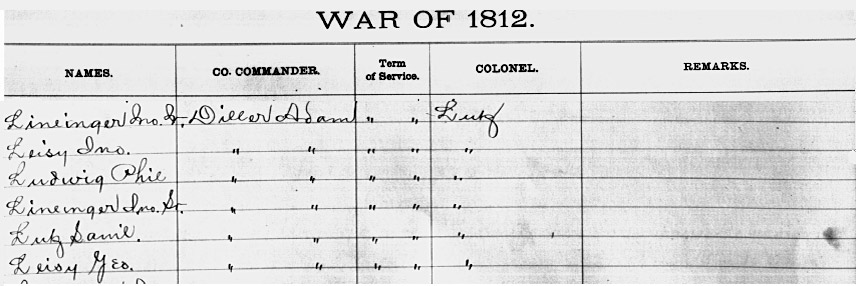 WAR OF 1812.
NAMES. CO. COMMANDER. Term of Service. COLONEL. REMARKS.
Lineinger Jno. Jr. Diller Adam " " Lutz
Leisy Jno. " " " " "
Ludwig Phil " " " " "
Lineinger Jno. Sr. " " " " "
Lutz Saml. " " " " "
Leisy Geo. " " " " "